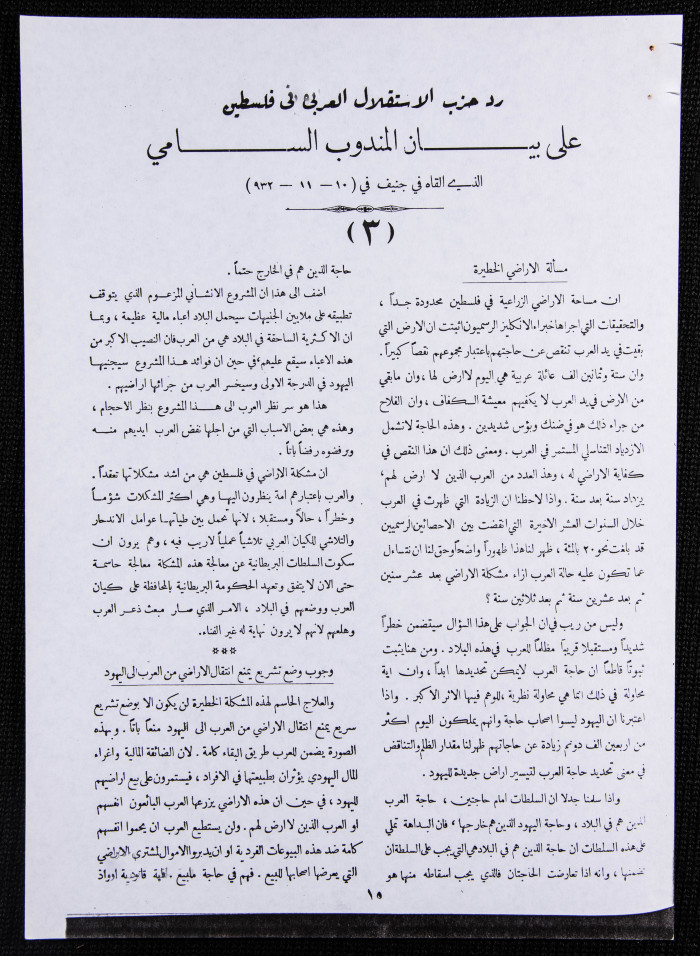 رد حزب الاستقلال العربي في فلسطين
على بيان المندوب السامي
الذي القاه في جنيف في (١٠ — ١١ — ٩٣٢)
(٣)
مسألة الاراضي الخطيرة
ان مساحة الاراضي الزراعية في فلسطين محدودة جداً ،
والتحقيقات التي اجراها خبراء الانكليز الرسميون اثبتت ان الارض التي
بقيت في يد العرب تنقص عن حاجتهم باعتبار مجموعهم نقصاً كبيراً .
وان ستة وثمانين الف عائلة عربية هي اليوم لا ارض لها ، وان مابقي
من الارض في يد العرب لا يكفيهم معيشة الكفاف ، وان الفلاح
من جراء ذلك هو في ضنك وبؤس شديدين . وهذه الحاجة لا تشمل
الازدياد التناسلي المستمر في العرب . ومعنى ذلك ان هذا النقص في
كفاية الاراضي له ، وهذ العدد من العرب الذين لا ارض لهم ،
يزداد سنة بعد سنة . واذا لاحظنا ان الزيادة التي ظهرت في العرب
خلال السنوات العشر الاخيرة التي انقضت بين الاحصائين الرسميين
قد بلغت نحو ٢٠ بالمئة ، ظهر لنا هذا ظهوراً واضحاً وحق لنا ان نتساءل
عما تكون عليه حالة العرب ازاء مشكلة الاراضي بعد عشر سنين
ثم بعد عشرين سنة ثم بعد ثلاثين سنة ؟
وليس من ريب في ان الجواب على هذا السؤال سيتضمن خطراً
شديداً ومستقبلا قريباً مظلماً للعرب في هذه البلاد . ومن هنا يثبت
ثبوتاً قاطعاً ان حاجة العرب لا يمكن تحديدها ابداً ، وان اية
محاولة في ذلك انما هي محاولة نظرية ، للوهم فيها الاثر الاكبر . واذا
اعتبرنا ان اليهود ليسوا اصحاب حاجة وانهم يملكون اليوم اكثر
من اربعين الف دونم زيادة عن حاجاتهم ظهر لنا مقدار الظلم والتناقض
في معنى تحديد حاجة العرب لتيسير اراض جديدة لليهود .
واذا سلمنا جدلا ان السلطات امام حاجتين ، حاجة العرب
الذين هم في البلاد ، وحاجة اليهود الذين هم خارجها ، فان البداهة تملي
على هذه السلطات ان حاجة الذين هم في البلاد هي التي يجب على السلطة ان
تضمنها ، وانه اذا تعارضت الحاجتان فالذي يجب اسقاطه منها هو
حاجة الذين هم في الخارج حتماً .
اضف الى هذا ان المشروع الانشائي المزعوم الذي يتوقف
تطبيقه على ملايين الجنيهات سيحمل البلاد اعباء مالية عظيمة ، وبما
ان الاكثرية الساحقة في البلاد هي من العرب فان النصيب الاكبر من
هذه الاعباء سيقع عليهم ، في حين ان فوائد هذا المشروع سيجنيها
اليهود في الدرجة الاولى وسيخسر العرب من جرائها اراضيهم .
هذا هو سر نظر العرب الى هذا المشروع بنظر الاحجام ،
وهذه هي بعض الاسباب التي من اجلها نفض العرب ايديهم منه
ورفضوه رفضاً باتاً .
ان مشكلة الاراضي في فلسطين هي من اشد مشكلاتها تعقداً .
والعرب باعتبارهم امة ينظرون اليها وهي اكثر المشكلات شؤماً
وخطراً ، حالاً ومستقبلا ، لانها تحمل بين طياتها عوامل الاندحار
والتلاشي للكيان العربي تلاشياً عملياً لا ريب فيه ، وهم يرون ان
سكوت السلطات البريطانية عن معالجة هذه المشكلة معالجة حاسمة
حتى الان لا يتفق وتعهد الحكومة البريطانية بالمحافظة على كيان
العرب ووضعهم في البلاد ، الامر الذي صار مبعث ذعر العرب
وهلعهم لانهم لا يرون نهاية له غير الفناء .
***
وجوب وضع تشريع يمنع انتقال الاراضي من العرب الى اليهود
والعلاج الحاسم لهذه المشكلة الخطيرة لن يكون الا بوضع تشريع
سريع يمنع انتقال الاراضي من العرب الى اليهود منعاً باتاً . وبهذه
الصورة يضمن للعرب طريق البقاء كامة . لان الضائقة المالية واغراء
المال اليهودي يؤثران بطبيعتها في الافراد ، فيستمرون على بيع اراضيهم
لليهود ، في حين ان هذه الاراضي يزرعها العرب البائعون انفسهم
او العرب الذين لا ارض لهم . ولن يستطيع العرب ان يحموا انفسهم
كامة ضد هذه البيوعات الفردية او ان يدبروا الاموال لمشتري الاراضي
التي يعرضها اصحابها للبيع . فهم في حاجة
١٥